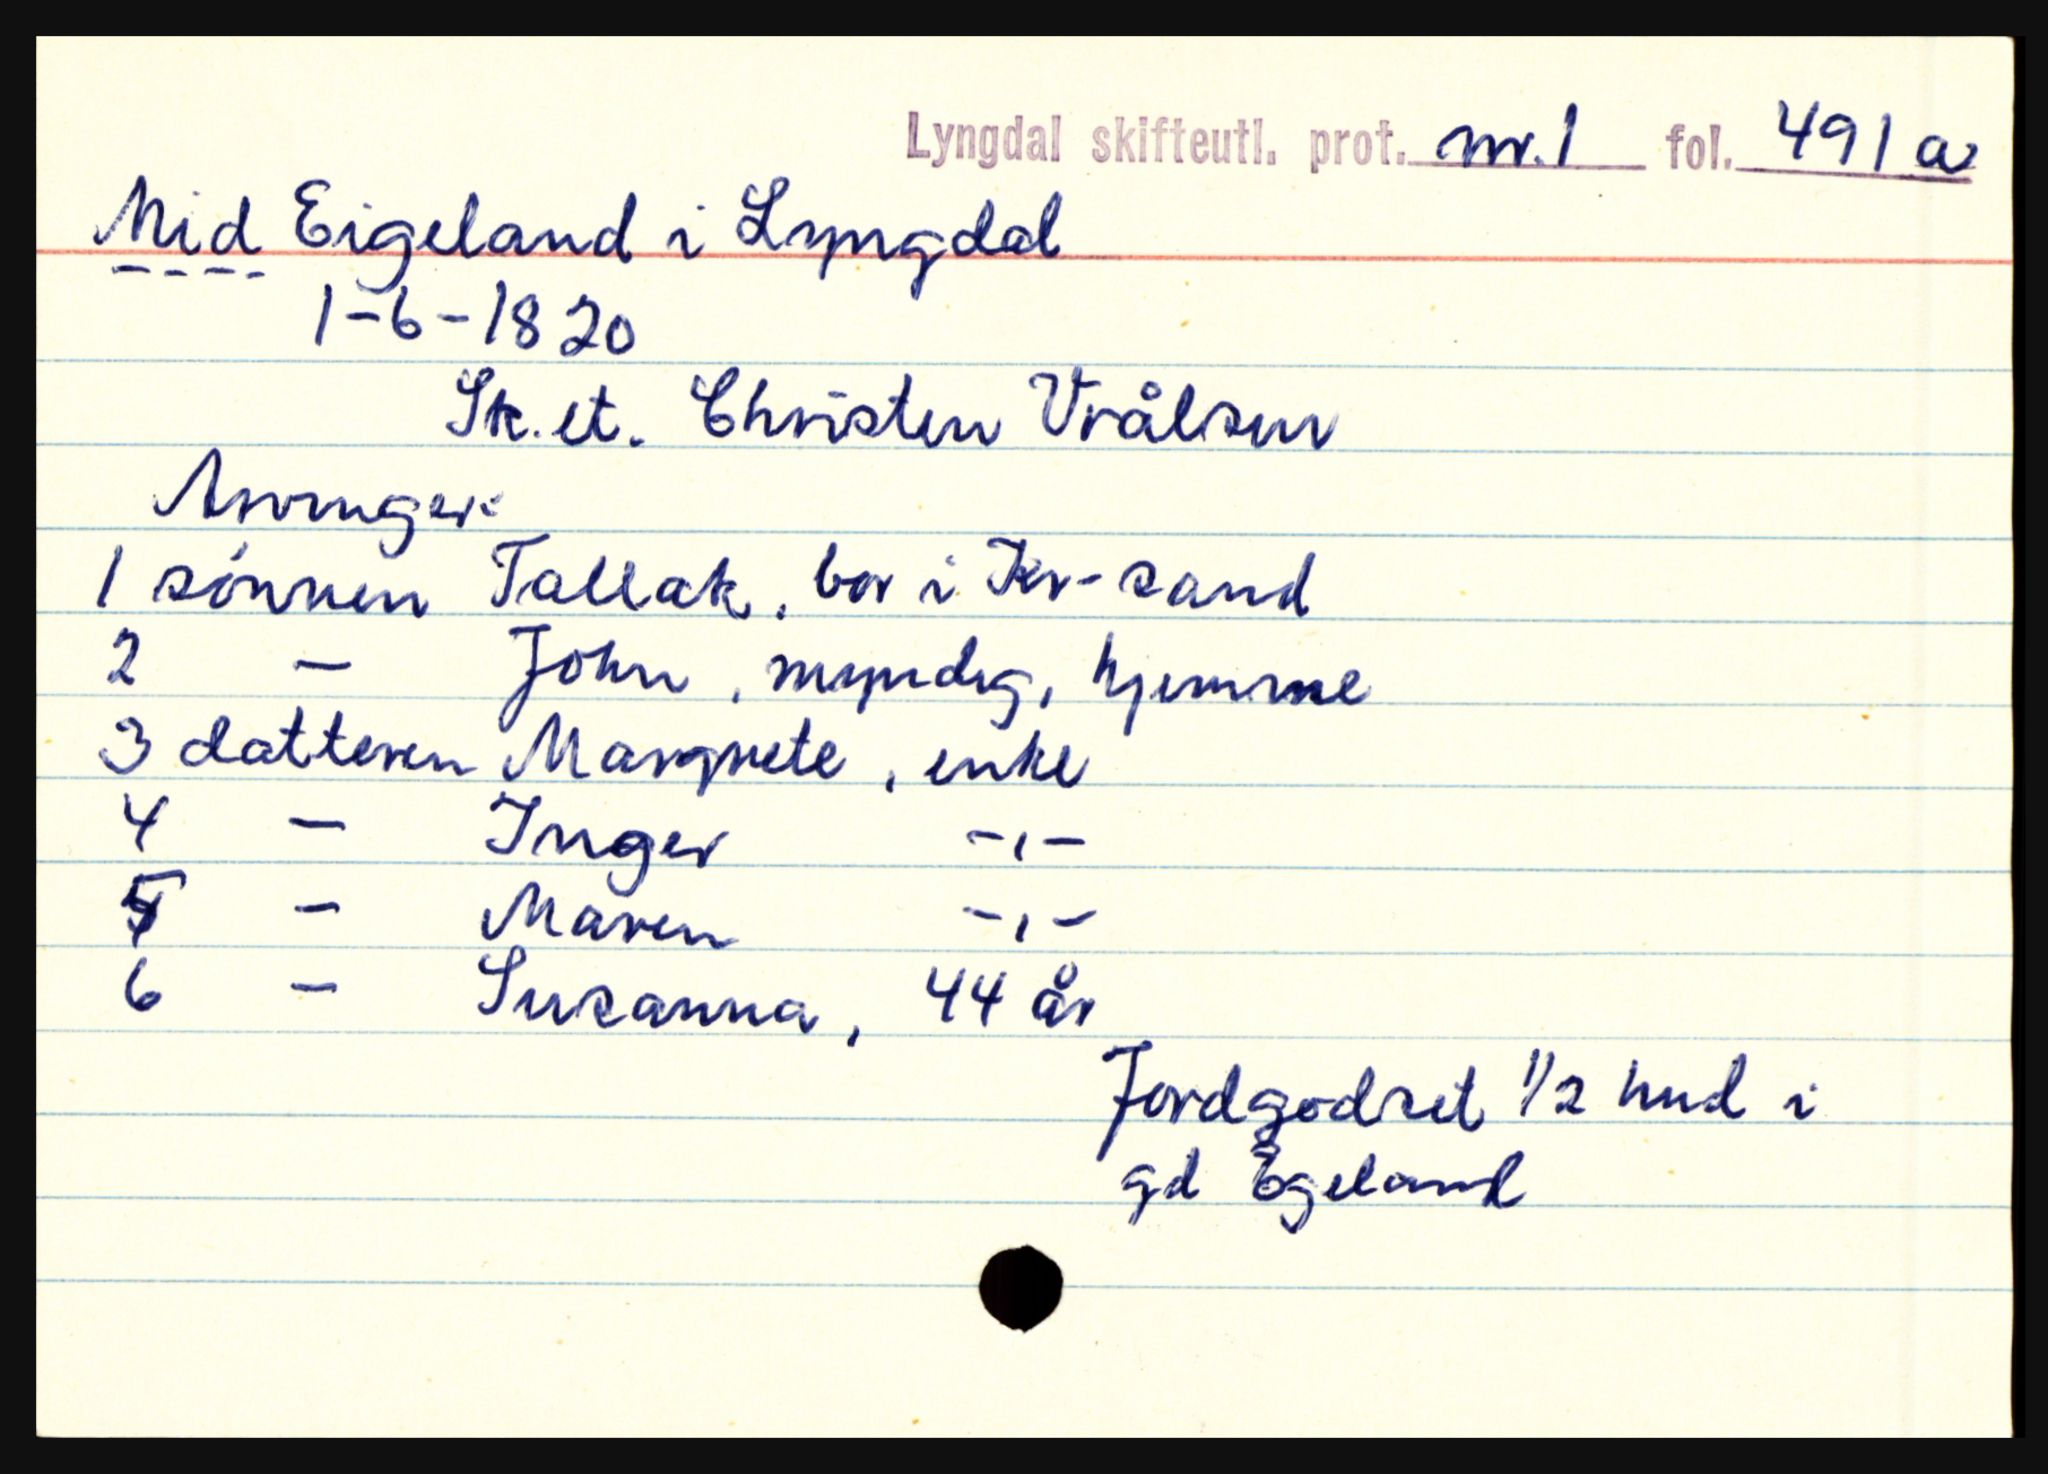 Lyngdal skifteutl. prot. nr. 1 fol. 491 a
Mid Eigeland i Lyngdal
1-6-1820
Sk. et. Christen Vrålsen
Arvinger:
1 sønnen Tallak, bor i Kr-sand
2 — John, myndig, hjemme
3 datteren Margrete, enke
4 — Inger -,-
5 — Maren -,-
6 — Susanna, 44 år
Jordgodset 1/2 hud i
gd Egeland